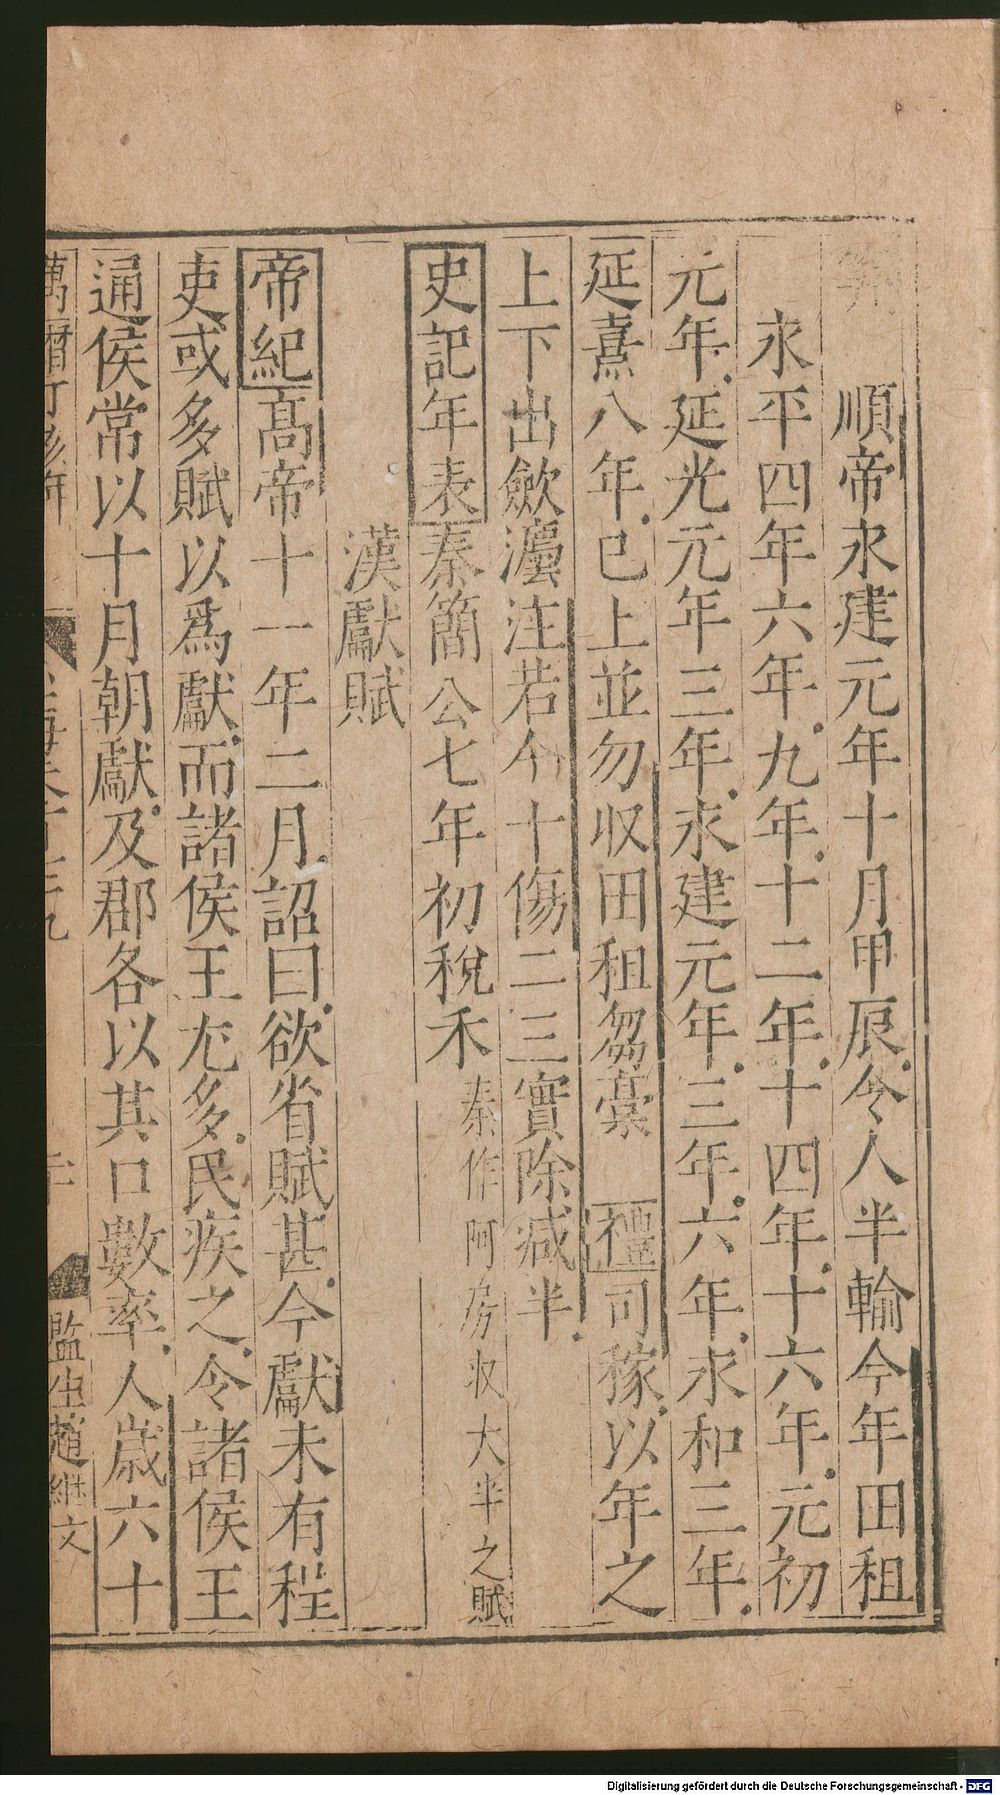 順帝永建元年十月甲辰令人半輸今年田租
永平四年六年九年十二年十四年十六年元初
元年延光元年三年永建元年三年六年永和三年
延熹八年已上並勿収田租芻稾 禮司稼以年之
上下出斂灋注若今十傷二三實除减半
史記年表秦簡公七年初稅禾秦作阿房収大半之賦
漢獻賦
帝紀高帝十一年二月詔曰欲省賦甚今獻未有程
吏或多賦以爲獻而諸侯王尤多民疾之令諸侯王
通侯常以十月朝獻及郡各以其口數率人歲六十
萬曆丁亥年
監生趙継文
Digitalisierung gefördert durch die Deutsche Forschungsgemeinschaft - DFG